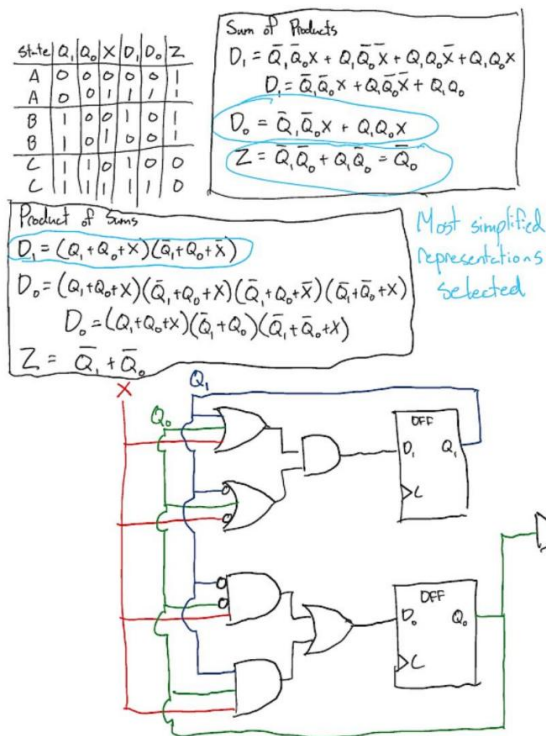 State Q₁ Q₀ X D₁ D₀ Z
A 0 0 0 0 0 1
A 0 0 1 1 1 1
B 1 0 0 1 0 1
B 1 0 1 0 0 1
C 1 1 0 1 0 0
C 1 1 1 1 1 0
Sum of Products
D₁ = Q̄₁Q̄₀X + Q₁Q̄₀X̄ + Q₁Q₀X̄ + Q₁Q₀X
D₁ = Q̄₁Q̄₀X + Q₁Q̄₀X̄ + Q₁Q₀
D₀ = Q̄₁Q̄₀X + Q₁Q₀X
Z = Q̄₁Q̄₀ + Q₁Q̄₀ = Q̄₀
Product of Sums
D₁ = (Q₁+Q₀+X)(Q̄₁+Q₀+X̄)
D₀ = (Q₁+Q₀+X)(Q̄₁+Q₀+X)(Q̄₁+Q₀+X̄)(Q̄₁+Q̄₀+X)
D₀ = (Q₁+Q₀+X)(Q̄₁+Q₀)(Q̄₁+Q̄₀+X)
Z = Q̄₁ + Q̄₀
Most simplified
representations
selected
X
Q₀
Q₁
DFF
D₁ Q₁
C
DFF
D₀ Q₀
C